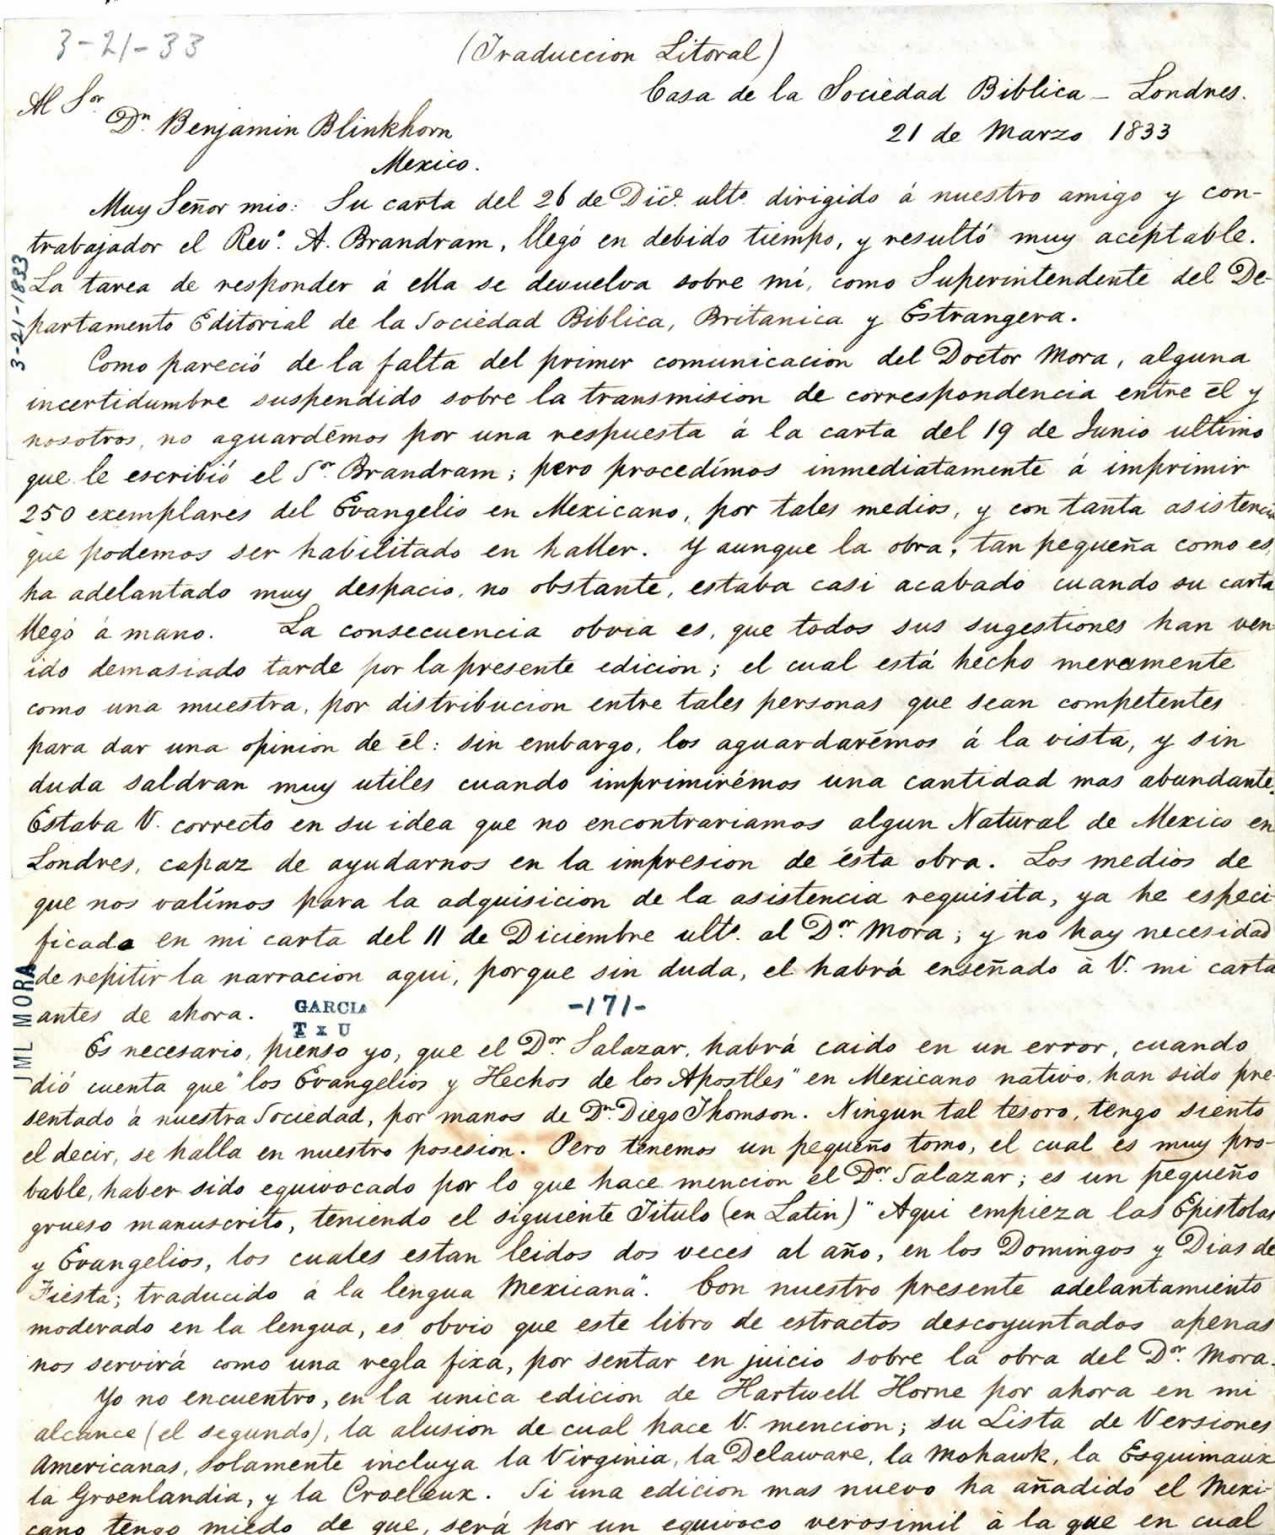 3-21-33
(Traduccion Litoral)
Casa de la Sociedad Biblica - Londres.
21 de Marzo 1833
Al Sor
Dn. Benjamin Blinkhorn
Mexico.
Muy Señor mio: Su carta del 26 de Dice. ulto. dirigido á nuestro amigo y con-
trabajador el Revo. A. Brandram, llegó en debido tiempo, y resultó muy aceptable.
La tarea de responder á ella se devuelva sobre mí, como Superintendente del De-
partamento Editorial de la Sociedad Biblica, Britanica y Estrangera.
3-21-1833
Como pareció de la falta del primer comunicacion del Doctor Mora, alguna
incertidumbre suspendido sobre la transmision de correspondencia entre él y
nosotros, no aguardémos por una respuesta á la carta del 19 de Junio ultimo
que le escribió el Sor. Brandram; pero procedímos inmediatamente á imprimir
250 exemplares del Evangelio en Mexicano, por tales medios, y con tanta asistencia
que podemos ser habilitado en haller. Y aunque la obra, tan pequeña como es,
ha adelantado muy despacio, no obstante, estaba casi acabado cuando su carta
llegó á mano. La consecuencia obvia es, que todos sus sugestiones han ven
ido demasiado tarde por la presente edicion; el cual está hecho meramente
como una muestra, por distribucion entre tales personas que sean competentes
para dar una opinion de él: sin embargo, los aguardarémos á la vista, y sin
duda saldran muy utiles cuando imprimirémos una cantidad mas abundante.
Estaba V. correcto en su idea que no encontrariamos algun Natural de Mexico en
Londres, capaz de ayudarnos en la impresion de ésta obra. Los medios de
que nos valímos para la adquisicion de la asistencia requisita, ya he especi-
ficada en mi carta del 11 de Diciembre ulto. al Dor. Mora; y no hay necesidad
de repitir la narracion aqui, porque sin duda, el habrá enseñado á V. mi carta
antes de ahora.
GARCIA
T x U
-171-
JML MORA
Es necesario, pienso yo, que el Dor. Salazar, habrá caido en un error, cuando
dió cuenta que "los Evangelios y Hechos de los Apostles" en Mexicano nativo, han sido pre-
sentado á nuestra Sociedad, por manos de Dn. Diego Thomson. Ningun tal tesoro, tengo siento
el decir, se halla en nuestro posesion. Pero tenemos un pequeño tomo, el cual es muy pro-
bable, haber sido equivocado por lo que hace mencion el Dor. Salazar; es un pequeño
grueso manuscrito, teniendo el siguiente Titulo (en Latin) "Aqui empieza las Epistolas
y Evangelios, los cuales estan leidos dos veces al año, en los Domingos y Dias de
Fiesta; traducido á la lengua Mexicana". Con nuestro presente adelantamiento
moderado en la lengua, es obvio que este libro de estractos descoyuntados apenas
nos servirá como una regla fixa, por sentar en juicio sobre la obra del Dor. Mora.
Yo no encuentro, en la unica edicion de Hartwell Horne por ahora en mi
alcance (el segundo), la alusion de cual hace V. mencion; su Lista de Versiones
Americanas, solamente incluya la Virginia, la Delaware, la Mohawk, la Esquimaux
la Groenlandia, y la Croeleux. Si una edicion mas nuevo ha añadido el Mexi-
cano tengo miedo de que, será por un equivoco verosimil à la que en cual